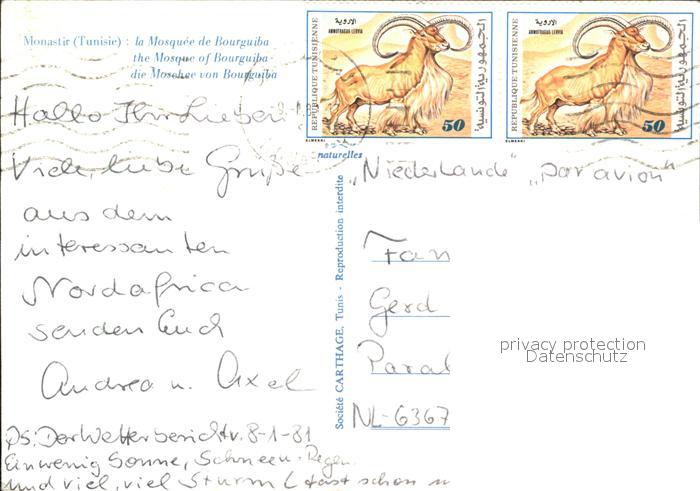 Monastir (Tunisie) : la Mosquée de Bourguiba
the Mosque of Bourguiba
die Moschee von Bourguiba
REPUBLIQUE TUNISIENNE
الاروية
AMMOTRAGUS LERVIA
الجمهورية التونسية
50
ELMEKKI
REPUBLIQUE TUNISIENNE
الاروية
AMMOTRAGUS LERVIA
الجمهورية التونسية
50
ELMEKKI
naturelles
Société CARTHAGE, Tunis - Reproduction interdite
Hallo Ihr Lieben
Viele, liebe Grüße
aus dem
interessanten
Nordafrica
senden Euch
Andrea u. Axel
PS: Der Wetterbericht v. 8-1-81
Ein wenig Sonne, Schnee u. Regen
und viel, viel Sturm (fast schon
„Niederlande" „par avion"
Fam
Gerd
Paral
NL-6367
privacy protection
Datenschutz